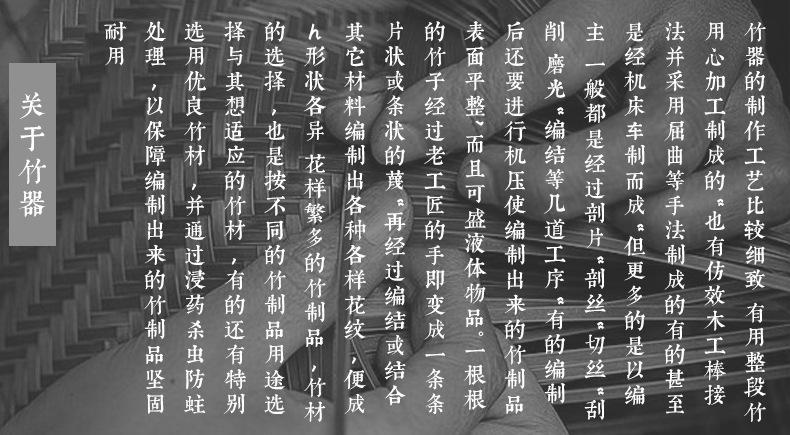 关于竹器
竹器的制作工艺比较细致 有用整段竹
用心加工制成的“也有仿效木工棒接
法并采用屈曲等手法制成的有的甚至
是经机床车制而成“但更多的是以编
主 一般都是经过剖片“剖丝“切丝“刮
削 磨光“编结等几道工序“有的编制
后还要进行机压使编制出来的竹制品
表面平整、而且可盛液体物品。一根根
的竹子经过老工匠的手即变成一条条
片状或条状的蔑“再经过编结或结合
其它材料编制出各种各样花纹,便成
h形状各异 花样繁多的竹制品,竹材
的选择,也是按不同的竹制品用途选
择与其想适应的竹材,有的还有特别
选用优良竹材,并通过浸药杀虫防蛀
处理,以保障编制出来的竹制品坚固
耐用